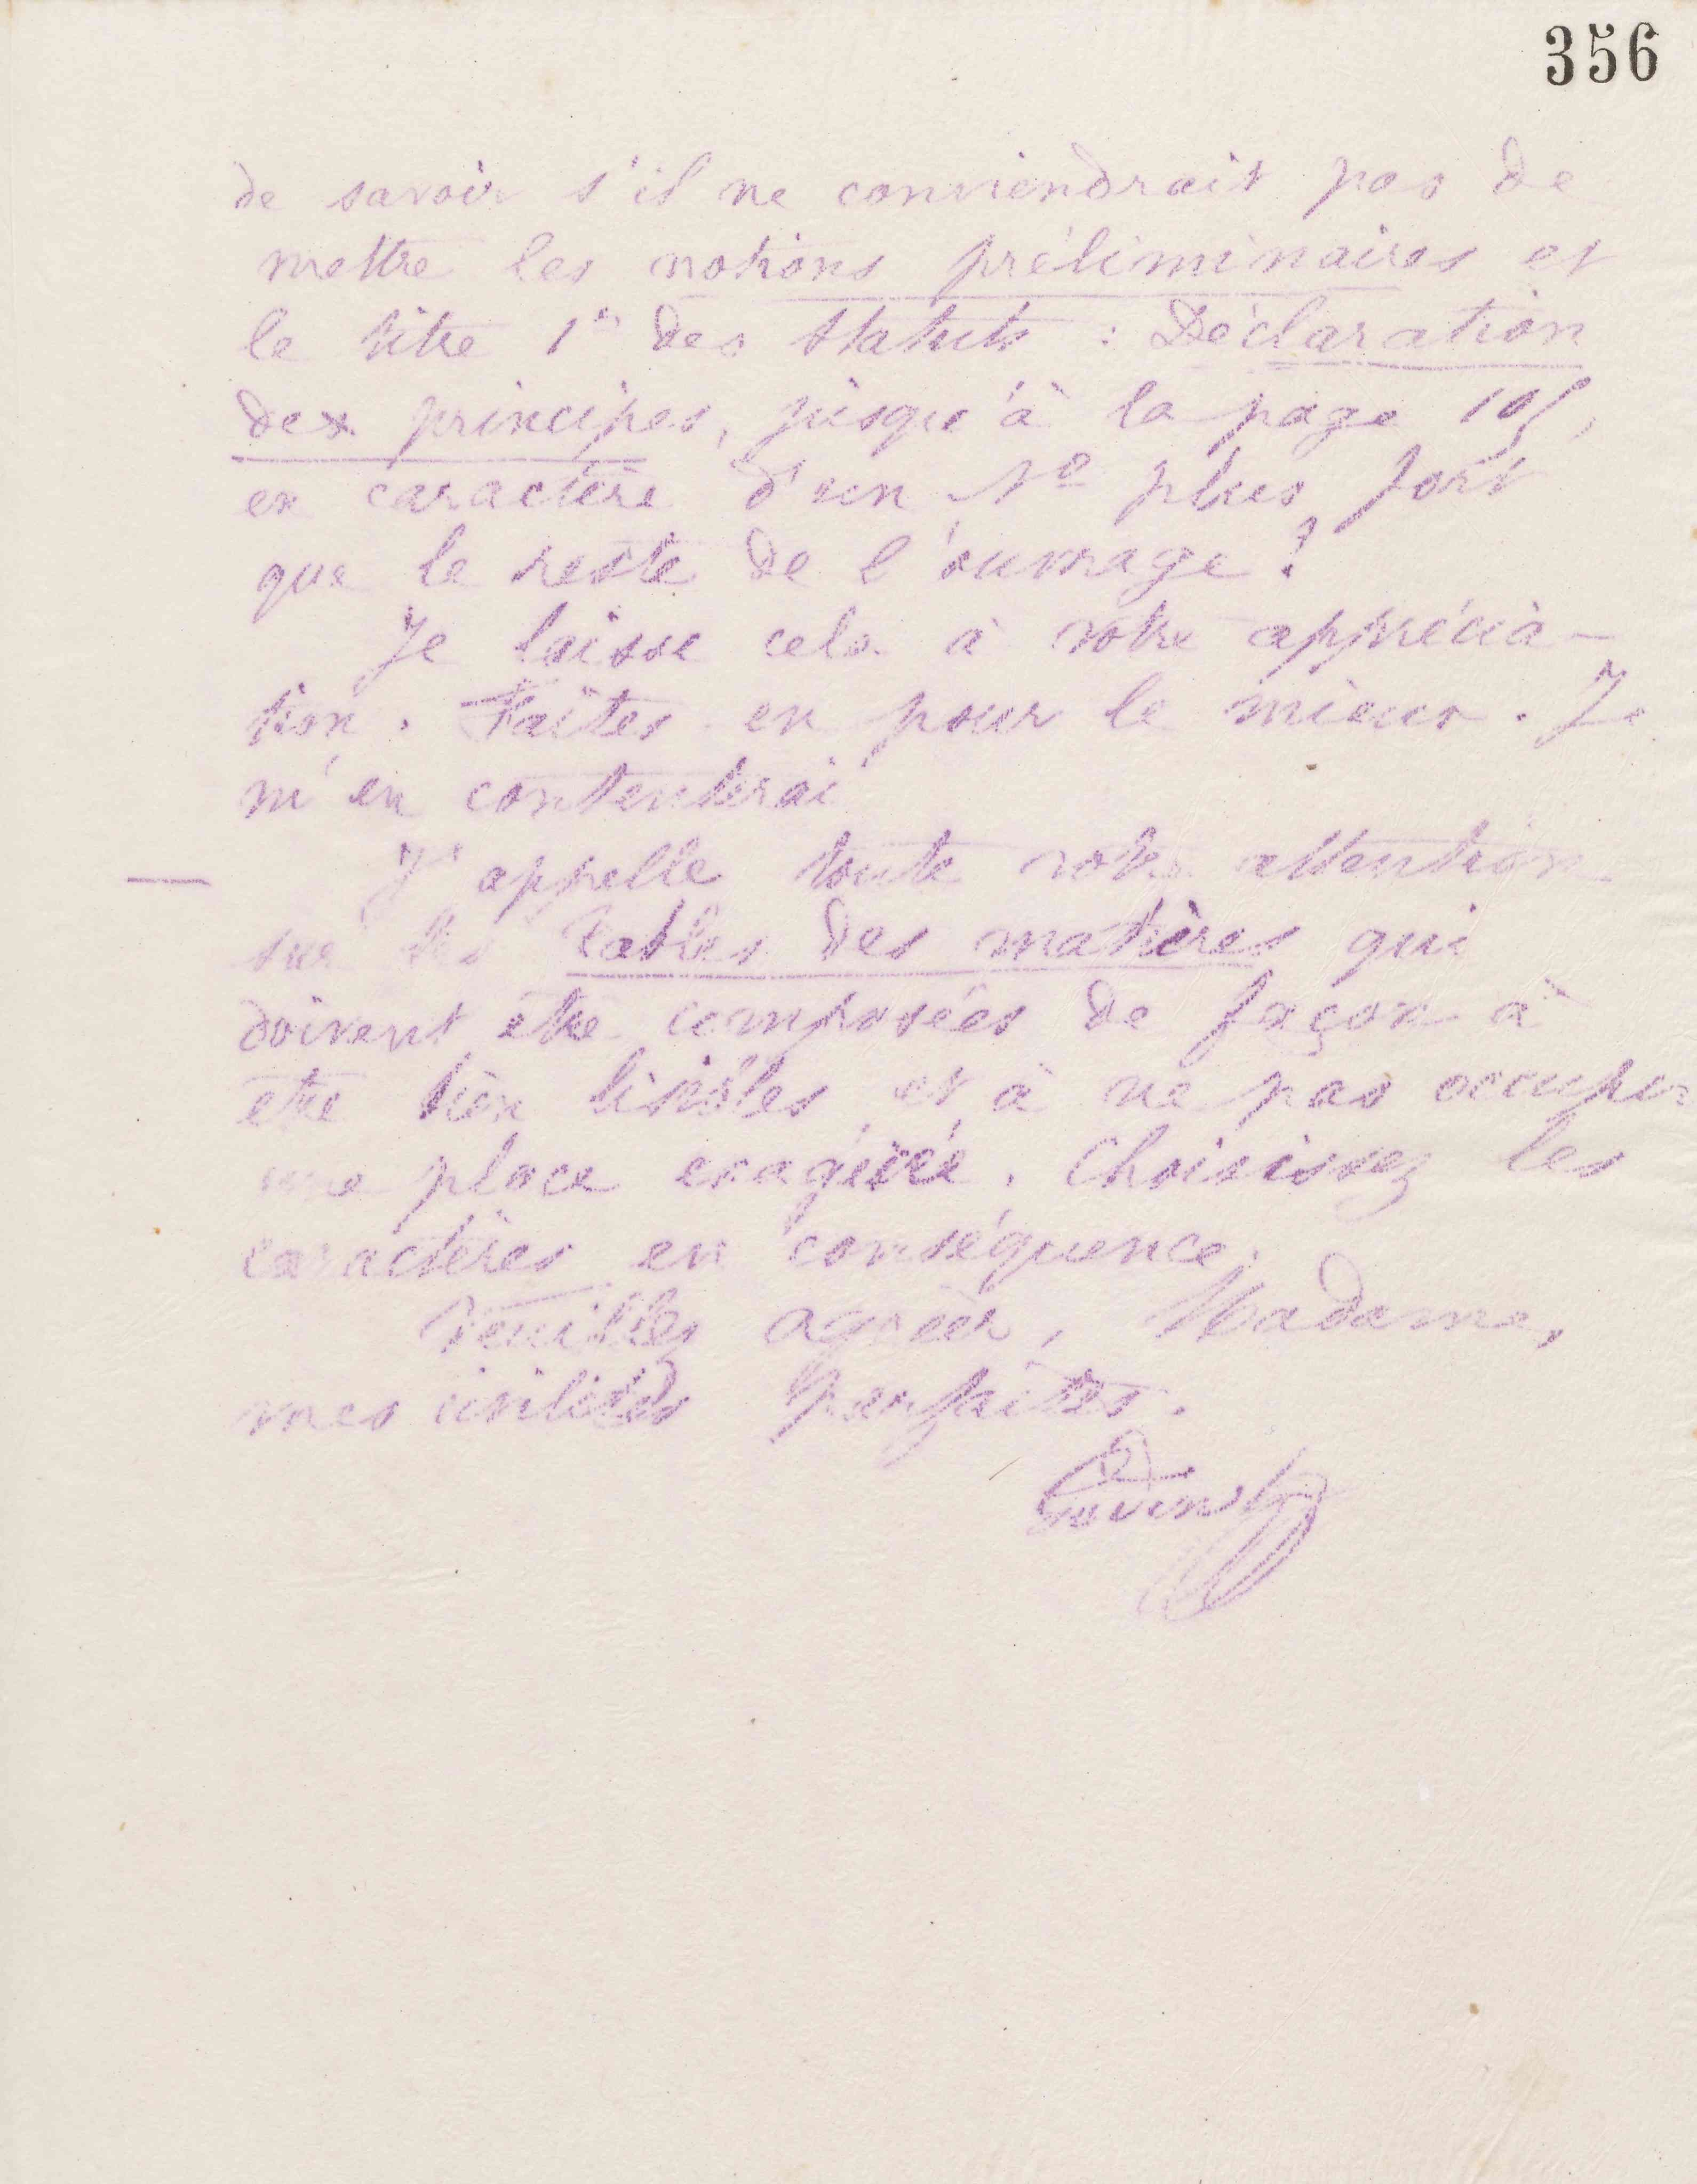 356
de savoir s'il ne conviendrait pas de
mettre les notions préliminaires et
le titre 1er des Statuts : Déclaration
des principes, jusqu'à la page 105,
en caractère d'un No plus fort
que le reste de l'ouvrage ?
Je laisse cela à votre apprécia-
tion. Faites en pour le mieux. Je
m'en contenterai
— J'appelle toute votre attention
sur les Tables des matières qui
doivent être composées de façon à
etre bien lisibles et à ne pas occuper
une place exagérée. Choisissez les
caractères en conséquence.
Veuillez agréer, Madame,
mes civilités parfaites.
Godin